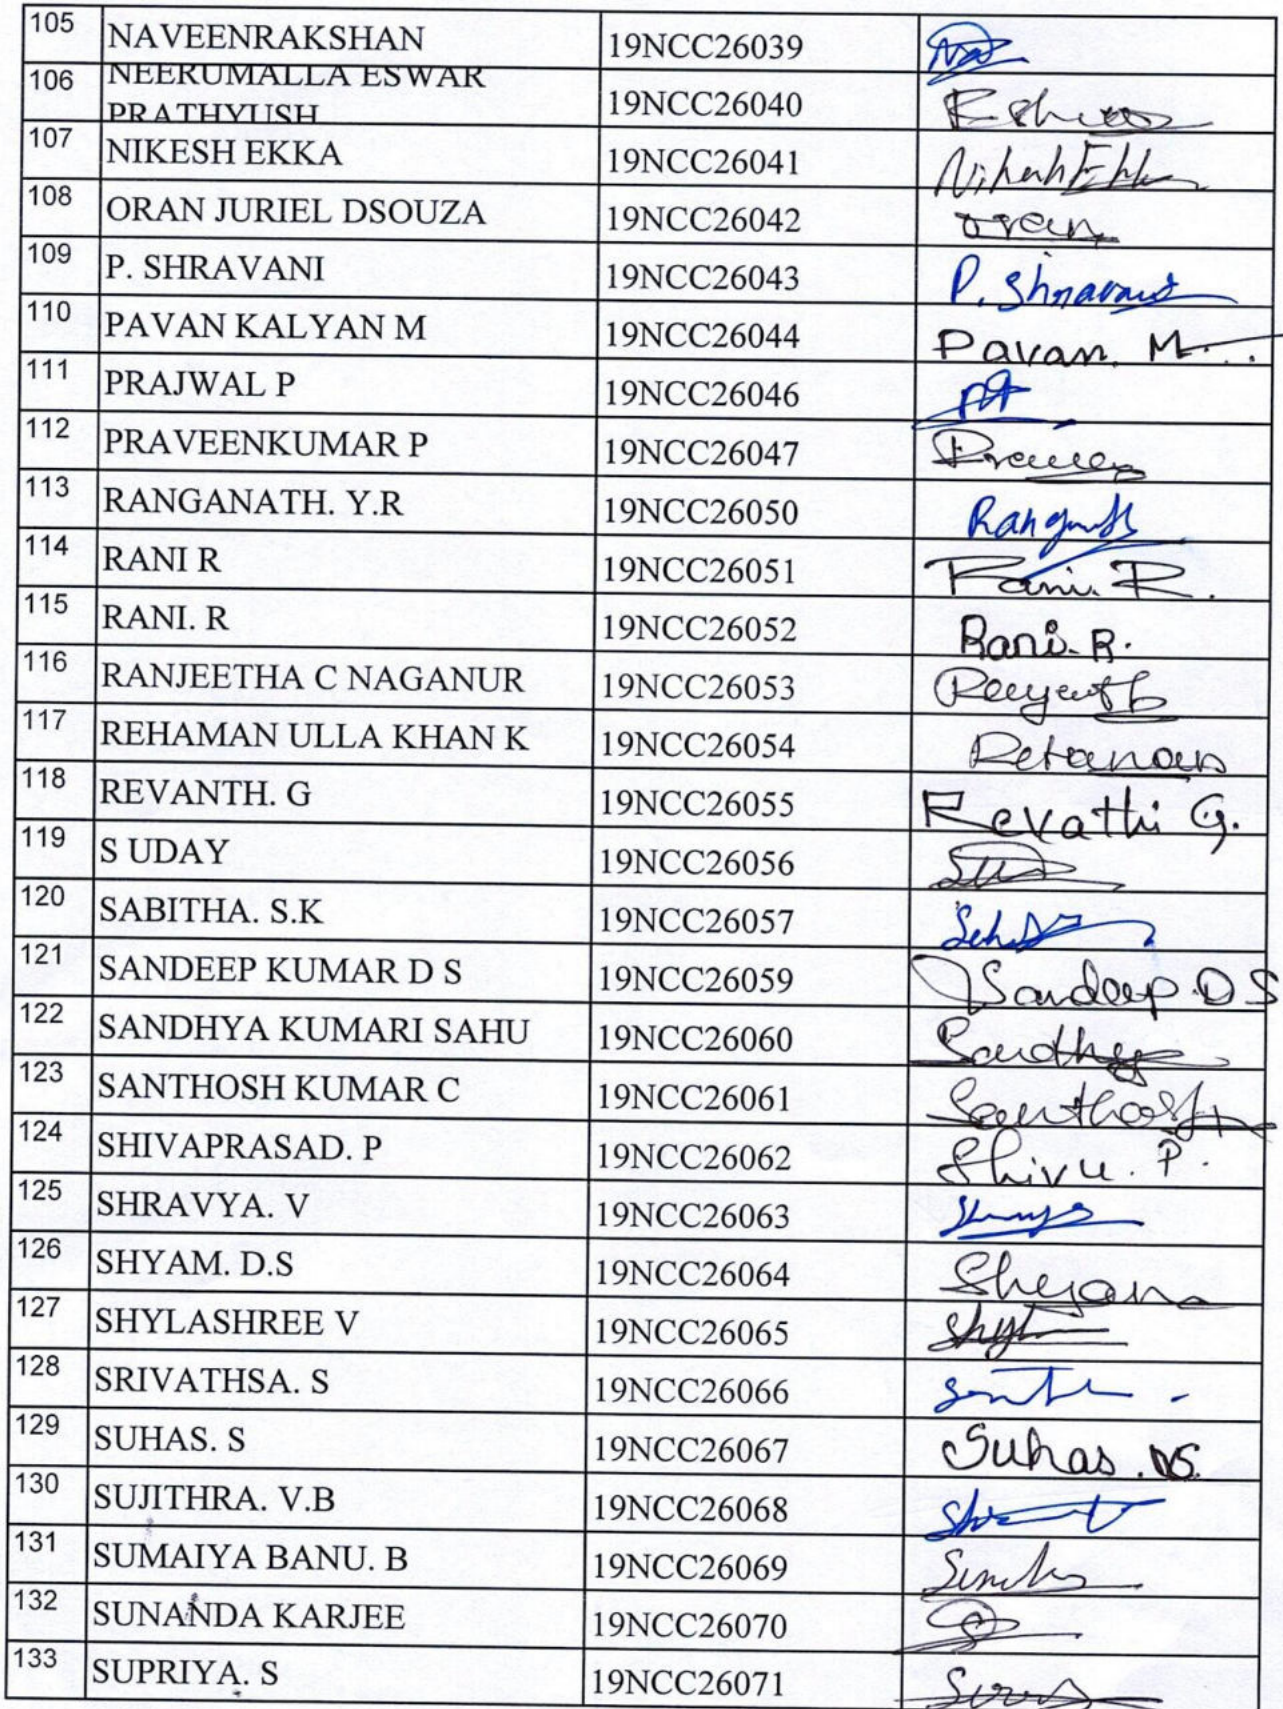 105 NAVEENRAKSHAN 19NCC26039
106 NEERUMALLA ESWAR PRATHYUSH 19NCC26040
107 NIKESH EKKA 19NCC26041
108 ORAN JURIEL DSOUZA 19NCC26042 Oran
109 P. SHRAVANI 19NCC26043 P. Shravani
110 PAVAN KALYAN M 19NCC26044 Pavan. M
111 PRAJWAL P 19NCC26046
112 PRAVEENKUMAR P 19NCC26047
113 RANGANATH. Y.R 19NCC26050
114 RANI R 19NCC26051 Rani. R.
115 RANI. R 19NCC26052 Rani. R.
116 RANJEETHA C NAGANUR 19NCC26053
117 REHAMAN ULLA KHAN K 19NCC26054
118 REVANTH. G 19NCC26055 Revathi G.
119 S UDAY 19NCC26056
120 SABITHA. S.K 19NCC26057
121 SANDEEP KUMAR D S 19NCC26059 Sandeep. D S
122 SANDHYA KUMARI SAHU 19NCC26060 Sandhya
123 SANTHOSH KUMAR C 19NCC26061 Santhosh
124 SHIVAPRASAD. P 19NCC26062 Shivu. P.
125 SHRAVYA. V 19NCC26063
126 SHYAM. D.S 19NCC26064
127 SHYLASHREE V 19NCC26065
128 SRIVATHSA. S 19NCC26066
129 SUHAS. S 19NCC26067 Suhas.
130 SUJITHRA. V.B 19NCC26068
131 SUMAIYA BANU. B 19NCC26069
132 SUNANDA KARJEE 19NCC26070
133 SUPRIYA. S 19NCC26071